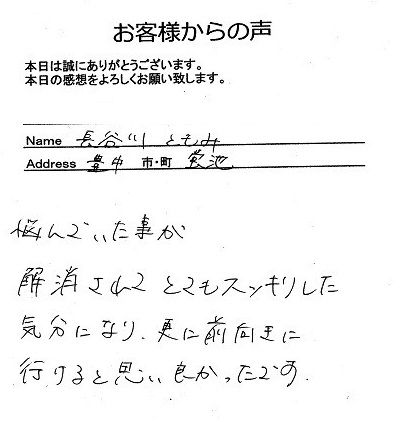 お客様からの声
本日は誠にありがとうございます。
本日の感想をよろしくお願い致します。
Name 長谷川 ともみ
Address 豊中 市・町 蛍池
悩んでいた事が
解消されて とてもスッキリした
気分になり、更に前向きに
行けると思い良かったです。